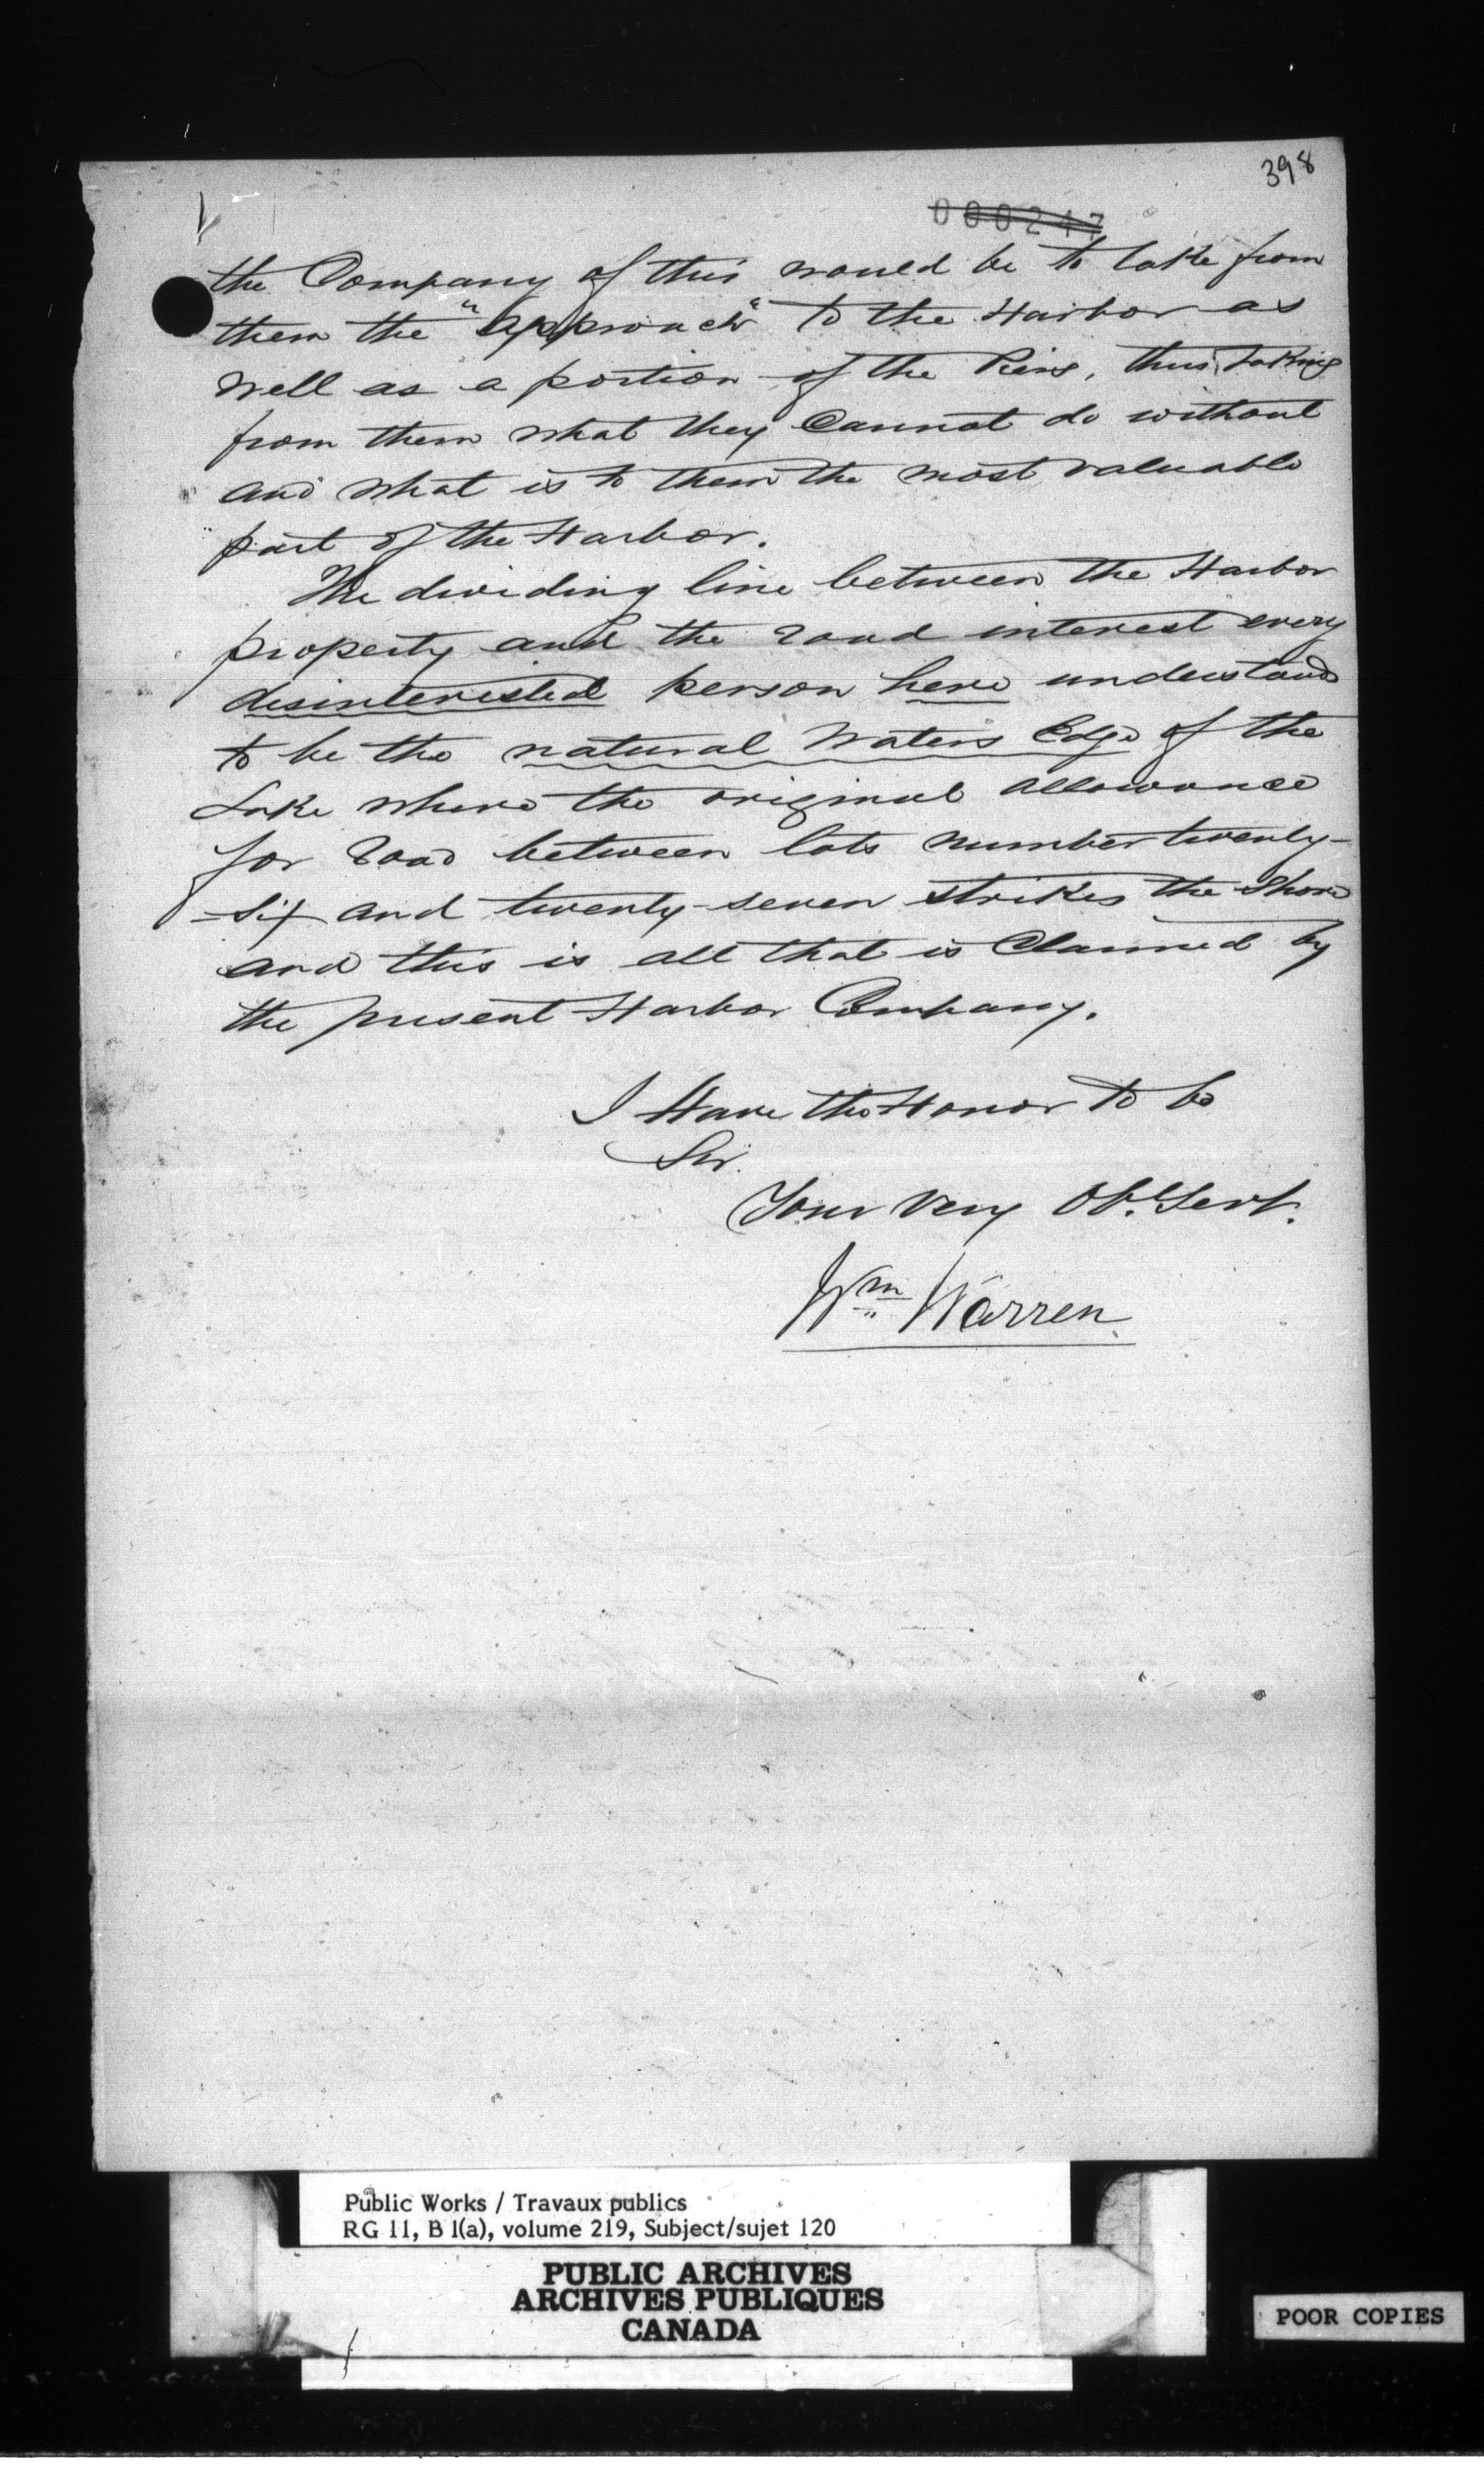 398
000247
the Company of this would be to take from
them the "approach" to the Harbor as
well as a portion of the Piers, thus taking
from them what they Cannot do without
and what is to them the most valuable
part of the Harbor.
The dividing line between the Harbor
property and the road interest every
disinterested person here understands
to be the natural Waters Edge of the
Lake where the original allowance
for Road between lots number twenty-
-six and twenty-seven strikes the Shore
and this is all that is Claimed by
the present Harbor Company.
I Have the Honor to be
Sir.
Your Very Ob. Servt.
Wm Warren
Public Works / Travaux publics
RG 11, B 1(a), volume 219, Subject/sujet 120
PUBLIC ARCHIVES
ARCHIVES PUBLIQUES
CANADA
POOR COPIES